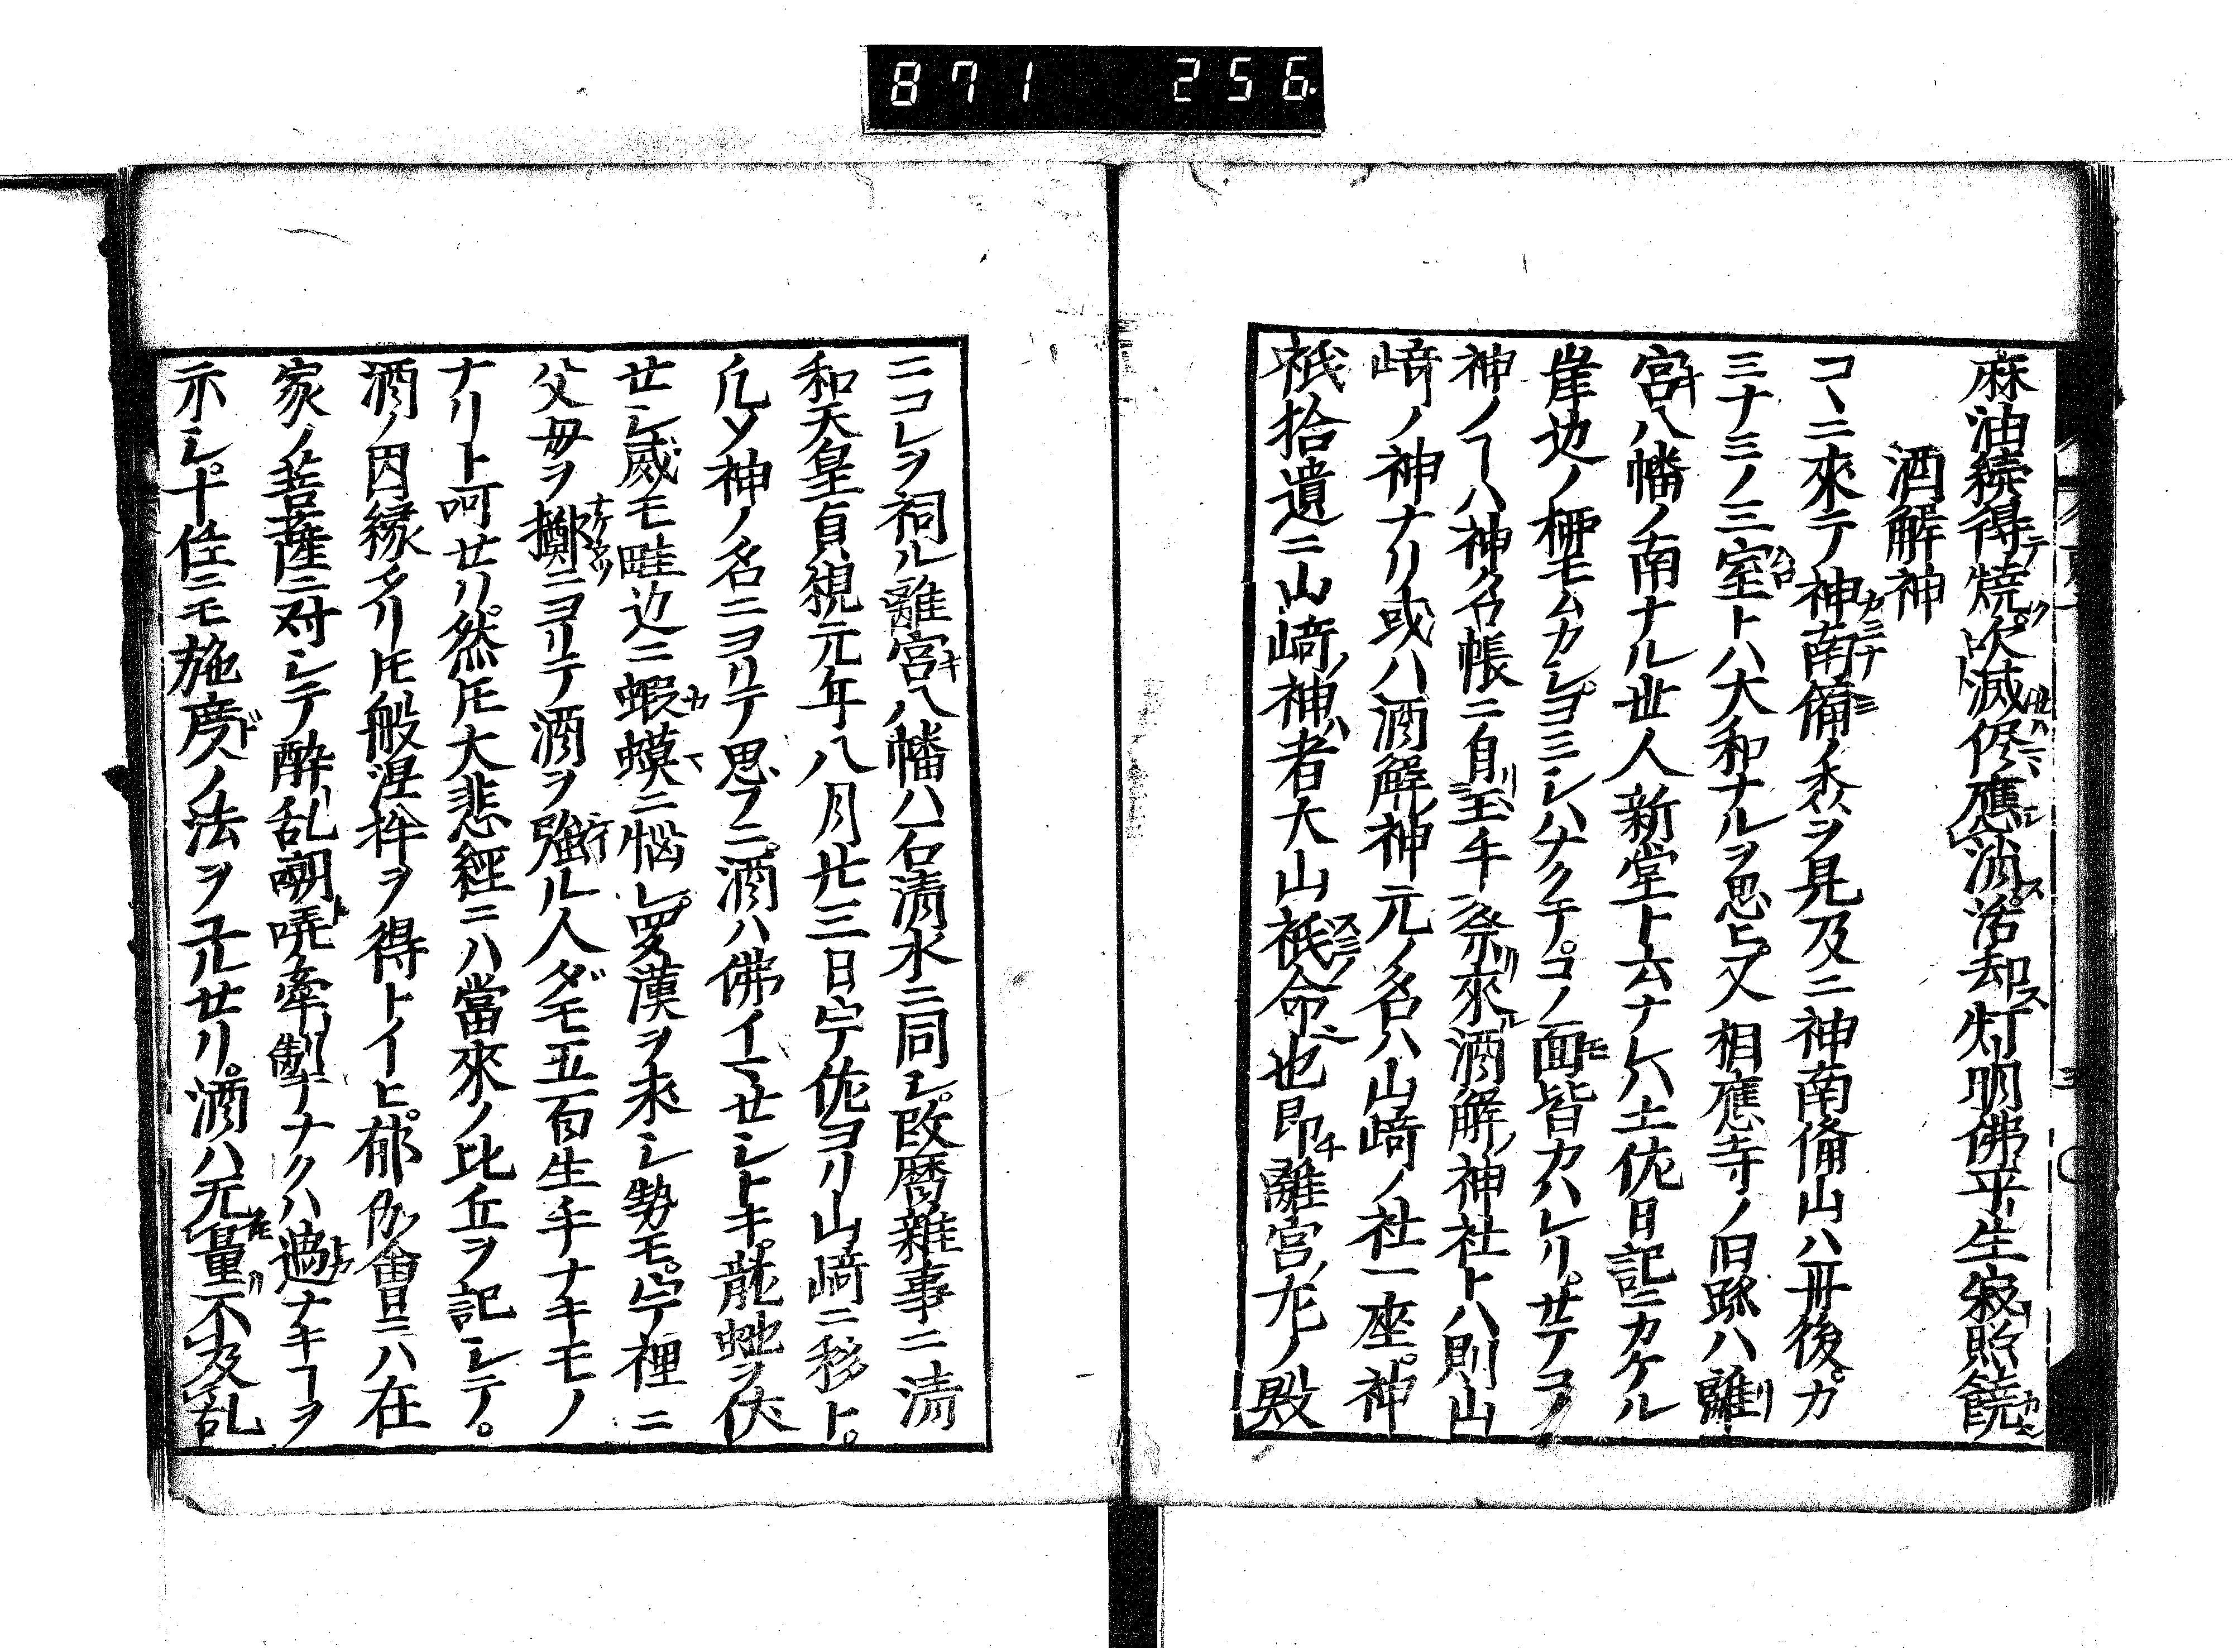 871 256
麻油続得テ焼ク吹滅侭應ニ消ス活却ス灯明佛平生寂照饒
酒解神
コヽニ來テ神南備ノ森ヲ見及ニ神南備山ハ丹後カ
ミナミノ三室トハ大和ナルヲ思ヒ又相應寺ノ旧跡ハ離
宮八幡ノ南ナル世人新堂ト云ナリ土佐日記ニカケル
岸边ノ柳モムカシヨミシハナクテ。コノ面皆カハレリ。せテコノ
神ノヿハ神名帳ニ自玉手祭來酒解神社トハ則山
﨑ノ神ナリ或ハ酒解神元ノ名ハ山﨑ノ社一座。神
祇拾遺ニ山﨑ノ神ハ者大山祇命也即離宮ノ左ノ殿
ニコレヲ祠ル離宮八幡ハ石清水ニ同シ。改暦雜事ニ清
和天皇貞観元年八月廿三日宇佐ヨリ山﨑ニ移ト。
凡ソ神ノ名ニヨリテ思フニ。酒ハ佛イマせシトキ。龍蛇ヲ伏
せシ威モ畦辺ニ蝦蟆ニ悩シ。羅漢ヲ求シ勢モ。宇裡ニ
父母ヲ擲ニヨリテ酒ヲ強ル人ダモ五百生手ナキモノ
ナリト呵せリ。然𪜈大悲經ニハ當來ノ比丘ヲ記シテ。
酒ノ因縁タリ𪜈般涅槃ヲ得トイヒ。郁伽會ニハ在
家ノ菩薩ニ対シテ酔乱嘲哢牽制ナクハ過ナキヿヲ
示シ。十住ニモ施度ノ法ヲユルせリ。酒ハ无量不及乱